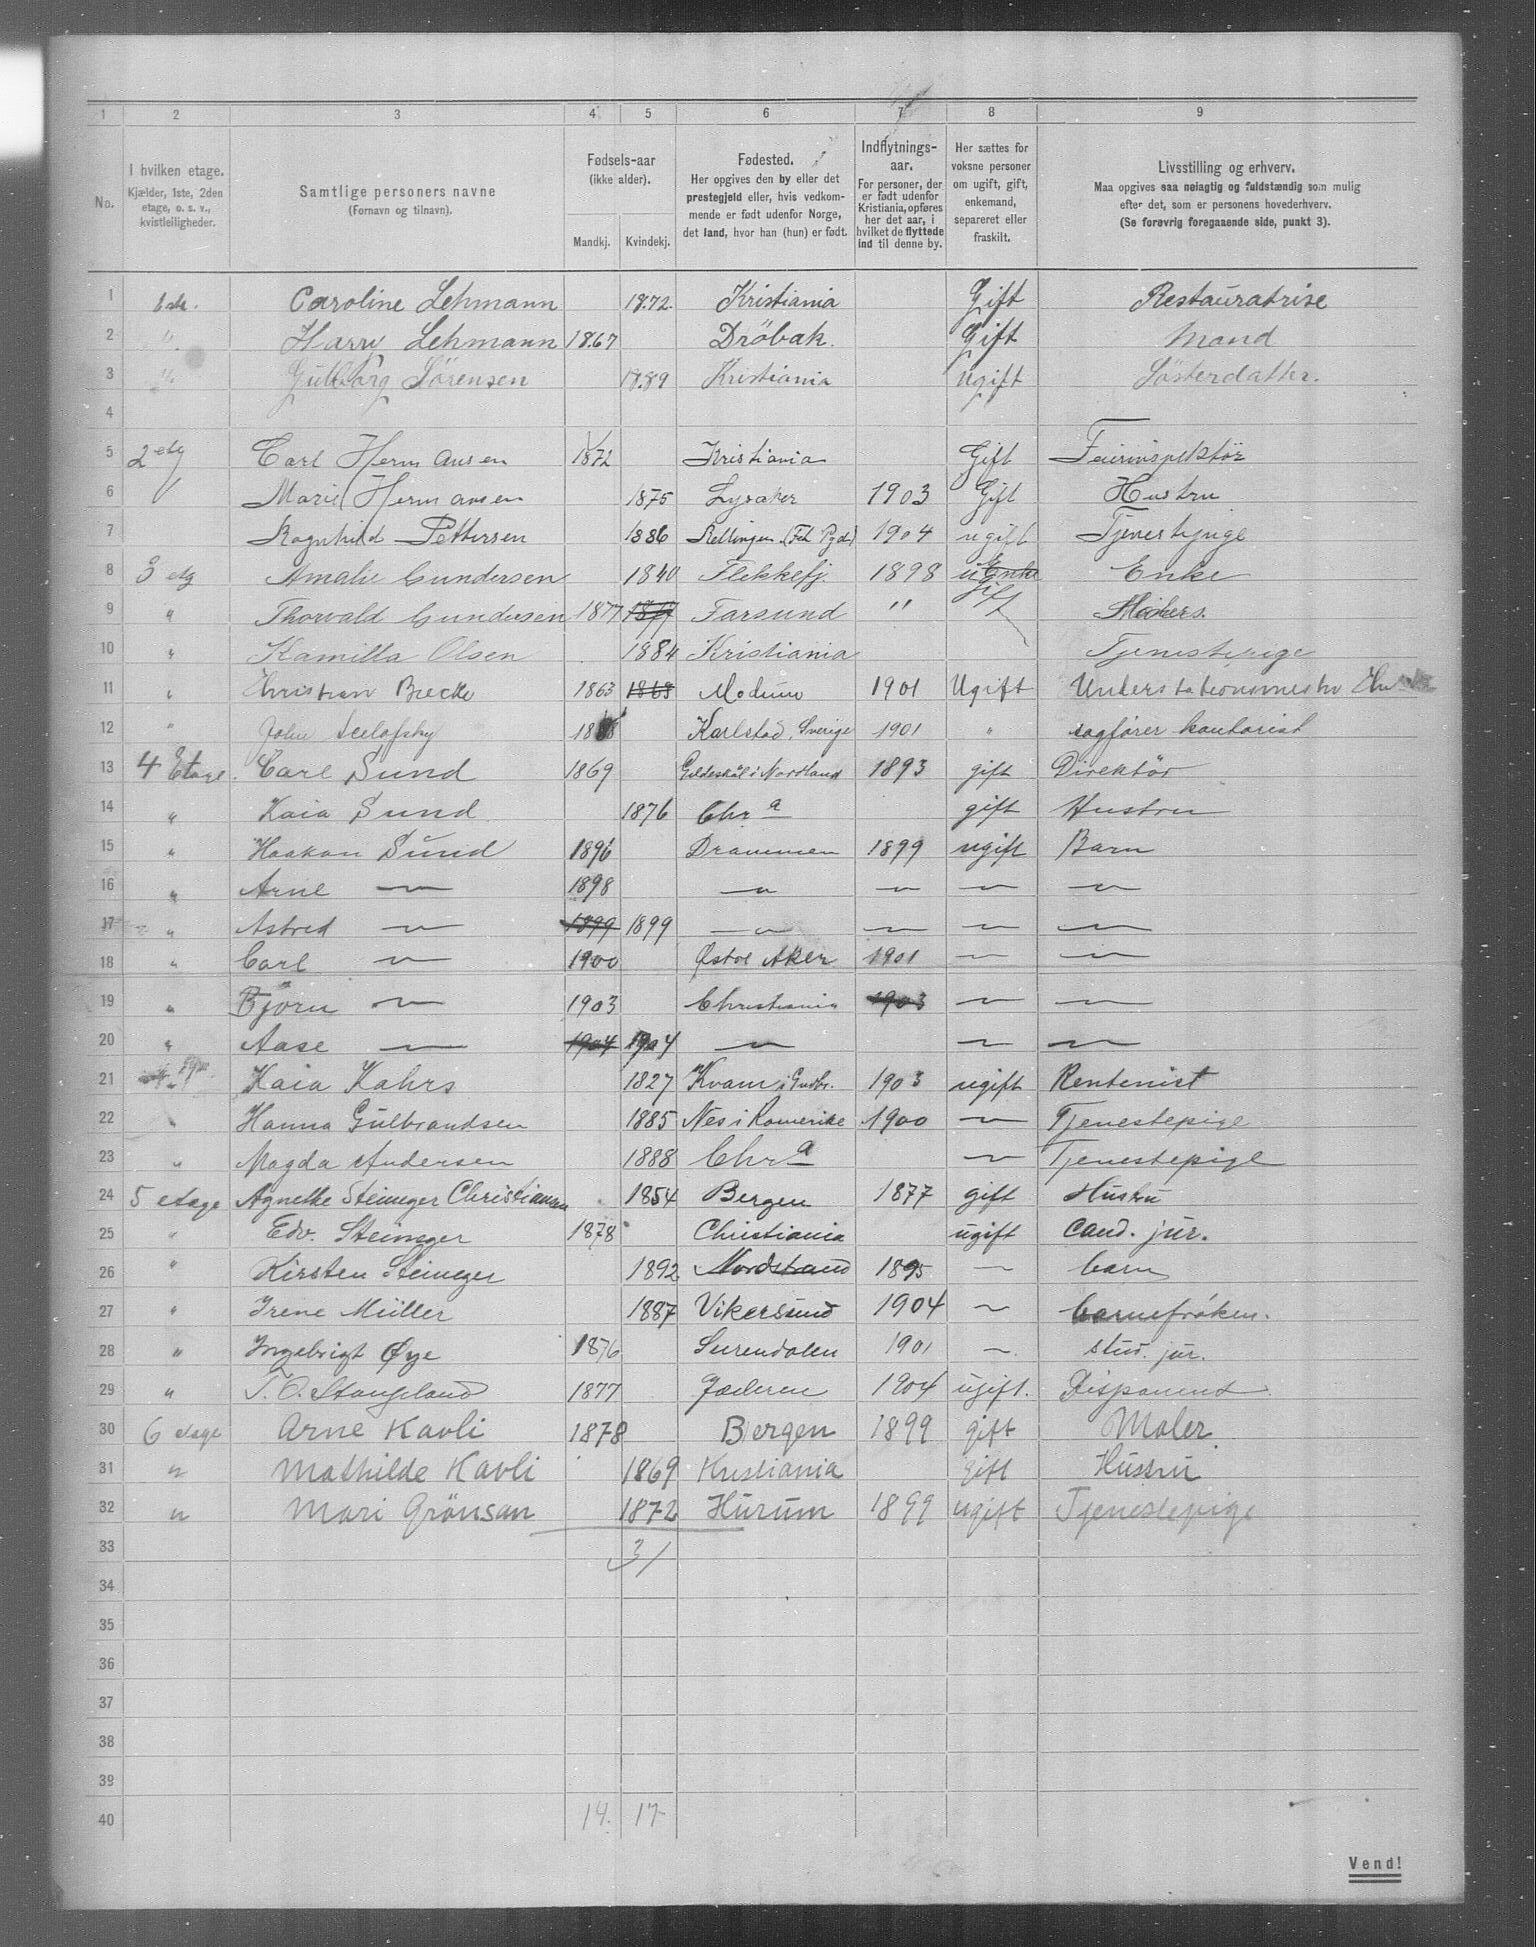 1 2 3 4 5 6 7 8 9
No.
I hvilken etage.
Kjælder, 1ste, 2den
etage, o. s. v.,
kvistleiligheder.
Samtlige personers navne
(Fornavn og tilnavn).
Fødsels-aar
(ikke alder).
Mandkj. Kvindekj.
Fødested.
Her opgives den by eller det
prestegjeld eller, hvis vedkom-
mende er født udenfor Norge,
det land, hvor han (hun) er født.
Indflytnings-
aar.
For personer, der
er født udenfor
Kristiania, opføres
her det aar, i
hvilket de flyttede
ind til denne by.
Her sættes for
voksne personer
om ugift, gift,
enkemand,
separeret eller
fraskilt.
Livsstilling og erhverv.
Maa opgives saa nøiagtig og fuldstændig som mulig
efter det, som er personens hovederhverv.
(Se forøvrig foregaaende side, punkt 3).
1 1 etg. Caroline Lehmann 1872. Kristiania Gift Restauratrise
2 " Harry Lehmann 1867 Dröbak. Gift Mand
3 " Gulborg Sörensen 1889 Kristiania ugift Sösterdatter.
4
5 2 etg Carl Hermansen 1872 Kristiania Gift Feierinspektör
6 Marie Hermansen 1875 Lysaker 1903 Gift Hustru
7 Ragnhild Pettersen 1886 1904 ugift Tjenestepige
8 3 etg Amalie Gundersen 1840 Flekkefj. 1898 Enke Enke
9 " Thorvald Gundersen 1877 1877 Farsund " gift
10 " Kamilla Olsen 1884 Kristiania Tjenestepige
11 " Christian Brecke 1863 1863 Modum 1901 Ugift Understationsmester
12 " John 18 Karlstad, Sverige 1901 " sagfører kontorist
13 4 Etage. Carl Sund 1869 Gildeskål i Nordland 1893 gift Direktör
14 " Kaia Sund 1876 Chra gift Hustru
15 " Haakon Sund 1896 Drammen 1899 ugift Barn
16 " Arne — 1898 — — — —
17 " Astred — 1899 1899 — — — —
18 " Carl — 1900 Østre Aker 1901 — —
19 " Bjørn — 1903 Christiania 1903 — —
20 " Aase — 1904 1904 — — —
21 " Kaia Kahrs 1827 Kvam i Gudbr. 1903 ugift Rentenist
22 " Hanna Gulbrandsen 1885 Nes i Romerike 1900 — Tjenestepige
23 " Magda Andersen 1888 Chra — Tjenestepige
24 5 etage Agnethe Steineger Christiansen 1854 Bergen 1877 gift Hustru
25 " Edv. Steineger 1878 Christiania ugift cand. jur.
26 " Kirsten Steineger 1892 Nordstrand 1895 — barn
27 " Irene Müller 1887 Vikersund 1904 — barnefrøken.
28 " Ingebrigt Øye 1876 Surendalen 1901 — stud. jur.
29 " T. O. Stangeland 1877 Jæderen 1904 ugift. Disponent
30 6 etage Arne Kavli 1878 Bergen 1899 gift Maler
31 " Mathilde Kavli 1869 Kristiania gift Hustru
32 " Mari Grönsan 1872 Hurum 1899 ugift Tjenestepige
33 31
34
35
36
37
38
39
40 14. 17
Vend!